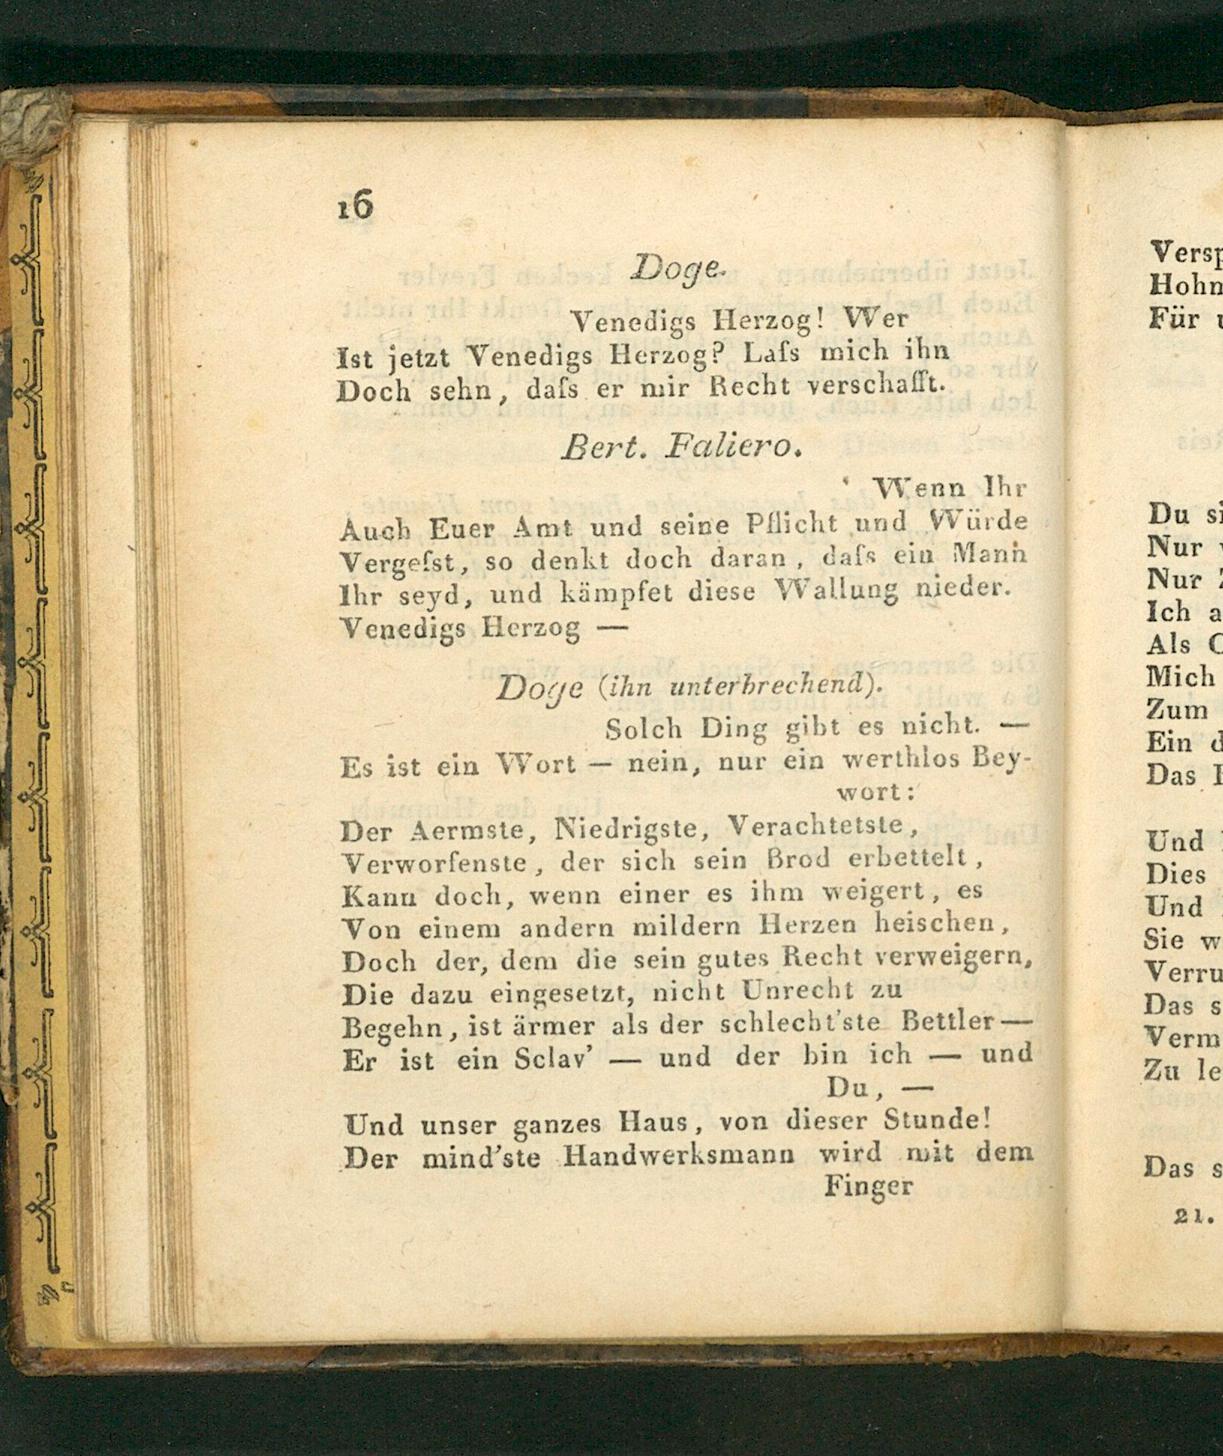 16
Doge.
Venedigs Herzog! Wer
Ist jetzt Venedigs Herzog? Laſs mich ihn
Doch sehn, daſs er mir Recht verschafft.
Bert. Faliero.
Wenn Ihr
Auch Euer Amt und seine Pflicht und Würde
Vergeſst, so denkt doch daran, daſs ein Mann
Ihr seyd, und kämpfet diese Wallung nieder.
Venedigs Herzog —
Doge (ihn unterbrechend).
Solch Ding gibt es nicht. —
Es ist ein Wort — nein, nur ein werthlos Bey-
wort:
Der Aermste, Niedrigste, Verachtetste,
Verworfenste, der sich sein Brod erbettelt,
Kann doch, wenn einer es ihm weigert, es
Von einem andern mildern Herzen heischen,
Doch der, dem die sein gutes Recht verweigern,
Die dazu eingesetzt, nicht Unrecht zu
Begehn, ist ärmer als der schlecht'ste Bettler —
Er ist ein Sclav' — und der bin ich — und
Du, —
Und unser ganzes Haus, von dieser Stunde!
Der mind'ste Handwerksmann wird mit dem
Finger
Für
Du
Nur
Nur
Ich
Als
Mich
Zum
Ein
Das
Und
Dies
Und
Sie
Das
Zu
Das
21.